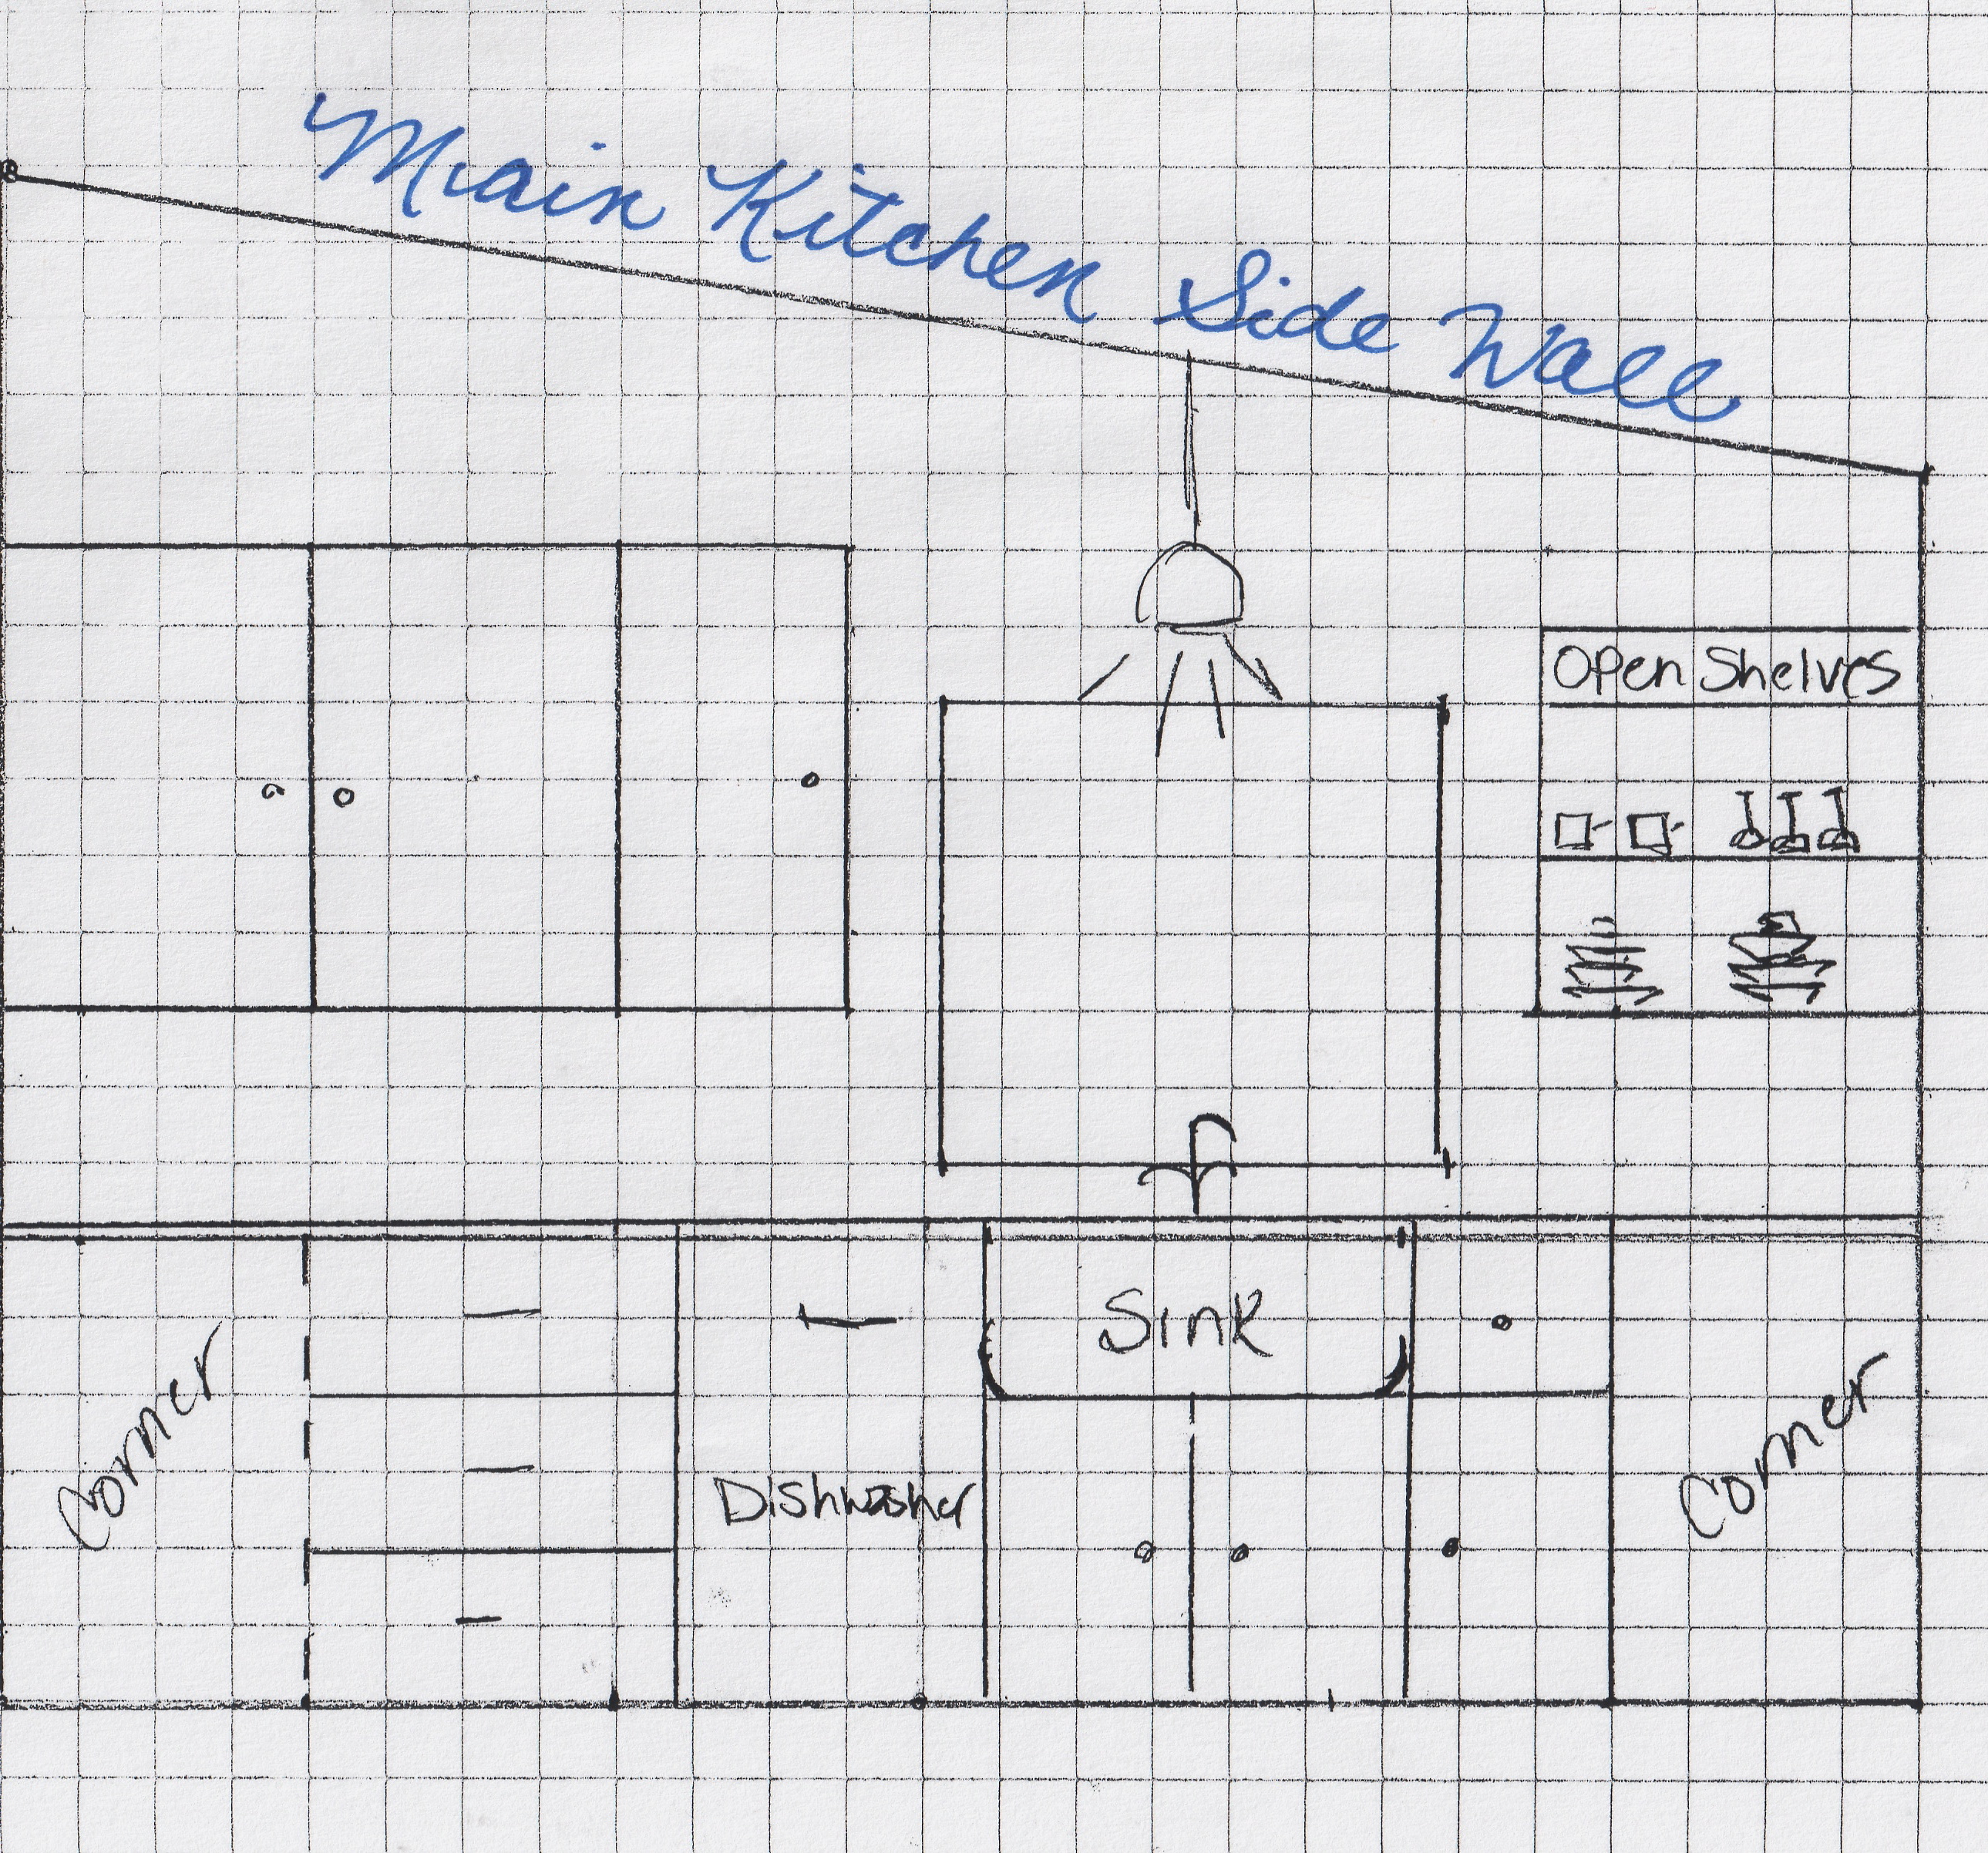 Main Kitchen Side Wall
Open Shelves
Sink
Corner
Dishwasher
Corner